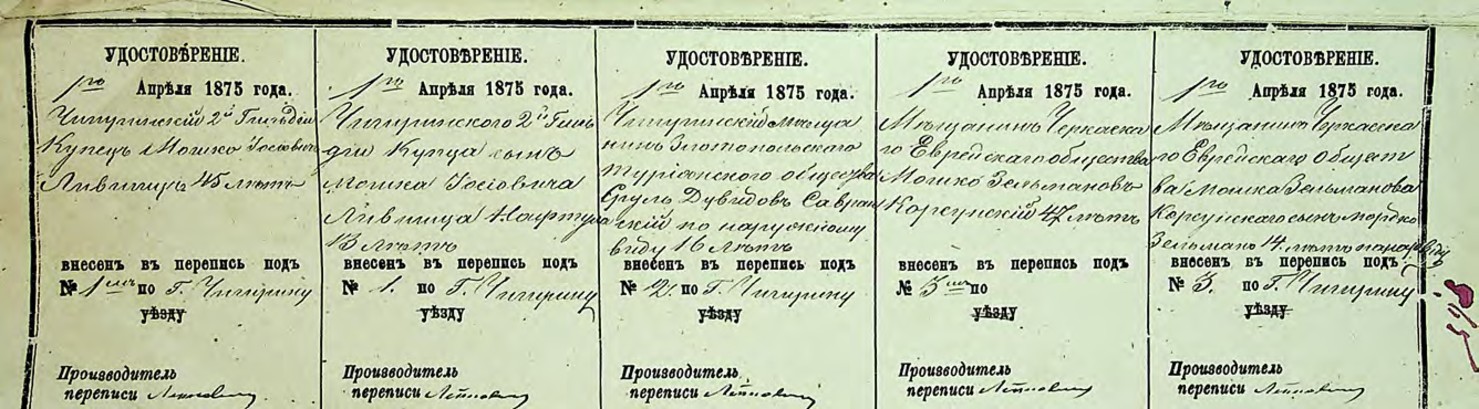 УДОСТОВѢРЕНІЕ.
1го Апрѣля 1875 года.
Чигиринскій 2й Гильдіи
Купецъ Мошко Іосіовичъ
Лившицъ 45 лѣтъ
внесенъ въ перепись подъ
№ 1мъ по Г. Чигирину
уѣзду
Производитель
переписи
УДОСТОВѢРЕНІЕ.
1го Апрѣля 1875 года.
Чигиринского 2й Гиль
діи Купца сынъ
Мошка Іосіовича
Лившица Нафтула
13 лѣтъ
внесенъ въ перепись подъ
№ 1. по Г. Чигирину
уѣзду
Производитель
переписи
УДОСТОВѢРЕНІЕ.
1го Апрѣля 1875 года.
Чигиринскій мѣща
нинъ Златопольскаго
Туріянского общества
Сруль Дувидовъ Савран
скій по наружному
виду 16 лѣтъ
внесенъ въ перепись подъ
№ 2. по Г. Чигирину
уѣзду
Производитель
переписи
УДОСТОВѢРЕНІЕ.
1го Апрѣля 1875 года.
Мѣщанинъ Черкаска
го Еврейскаго общества
Мошко Зельмановъ
Корсунскій 47 лѣтъ
внесенъ въ перепись подъ
№ 3мъ по
уѣзду
Производитель
переписи
УДОСТОВѢРЕНІЕ.
1го Апрѣля 1875 года.
Мѣщанинъ Черкасска
го Еврейскаго Общест
ва Мошка Зельманова
Корсунскаго сынъ Мордко
Зельманъ 14 лѣтъ по нар. виду
внесенъ въ перепись подъ
№ 3. по Г. Чигирину
уѣзду
Производитель
переписи